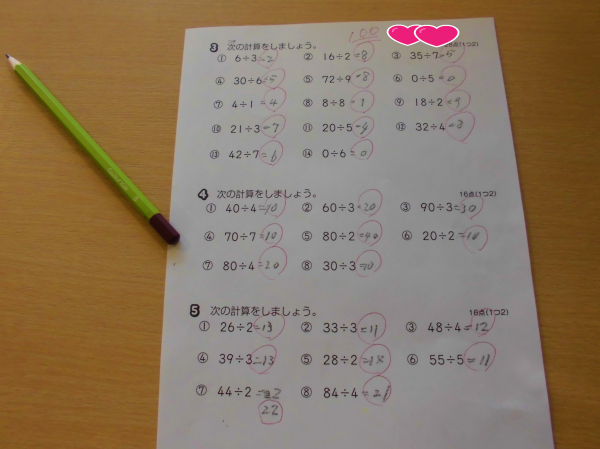 100
3 次の計算をしましょう。 28点(1つ2)
① 6÷3=2 ② 16÷2=8 ③ 35÷7=5
④ 30÷6=5 ⑤ 72÷9=8 ⑥ 0÷5=0
⑦ 4÷1=4 ⑧ 8÷8=1 ⑨ 18÷2=9
⑩ 21÷3=7 ⑪ 20÷5=4 ⑫ 32÷4=8
⑬ 42÷7=6 ⑭ 0÷6=0
4 次の計算をしましょう。 16点(1つ2)
① 40÷4=10 ② 60÷3=20 ③ 90÷3=30
④ 70÷7=10 ⑤ 80÷2=40 ⑥ 20÷2=10
⑦ 80÷4=20 ⑧ 30÷3=10
5 次の計算をしましょう。 16点(1つ2)
① 26÷2=13 ② 33÷3=11 ③ 48÷4=12
④ 39÷3=13 ⑤ 28÷2=14 ⑥ 55÷5=11
⑦ 44÷2=22 ⑧ 84÷4=21
22